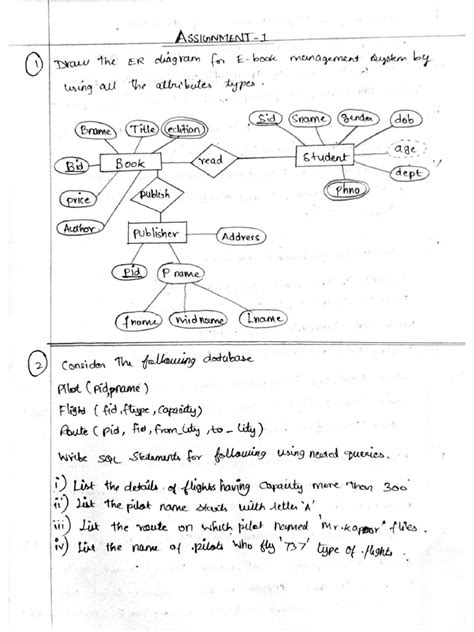 ASSIGNMENT-1
1 Draw the ER diagram for E-book management system by
using all the attributes types.
Bname Title edition
Sid Sname gender dob
Bid Book read Student age
dept
price publish phno
Author
Publisher Address
Pid Pname
fname midname Lname
2 Consider The following database
Pilot (Pid, pname)
Flight (fid, ftype, Capacity)
Route (Pid, fid, from_city, to_city)
Write SQL Statements for following using nested queries.
i) List the details of flights having Capacity more Than 300
ii) List the pilot name starts with letter 'A'
iii) List the route on which pilot named 'Mr. Kapoor' flies.
iv) List the name of pilots who fly '737' type of flights.